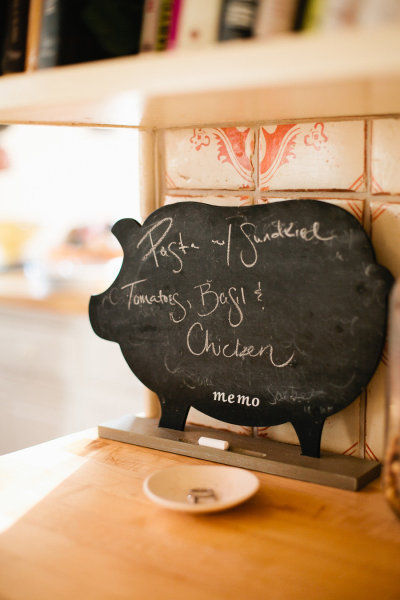 Pasta w/ Sundried
Tomatoes, Basil &
Chicken
memo